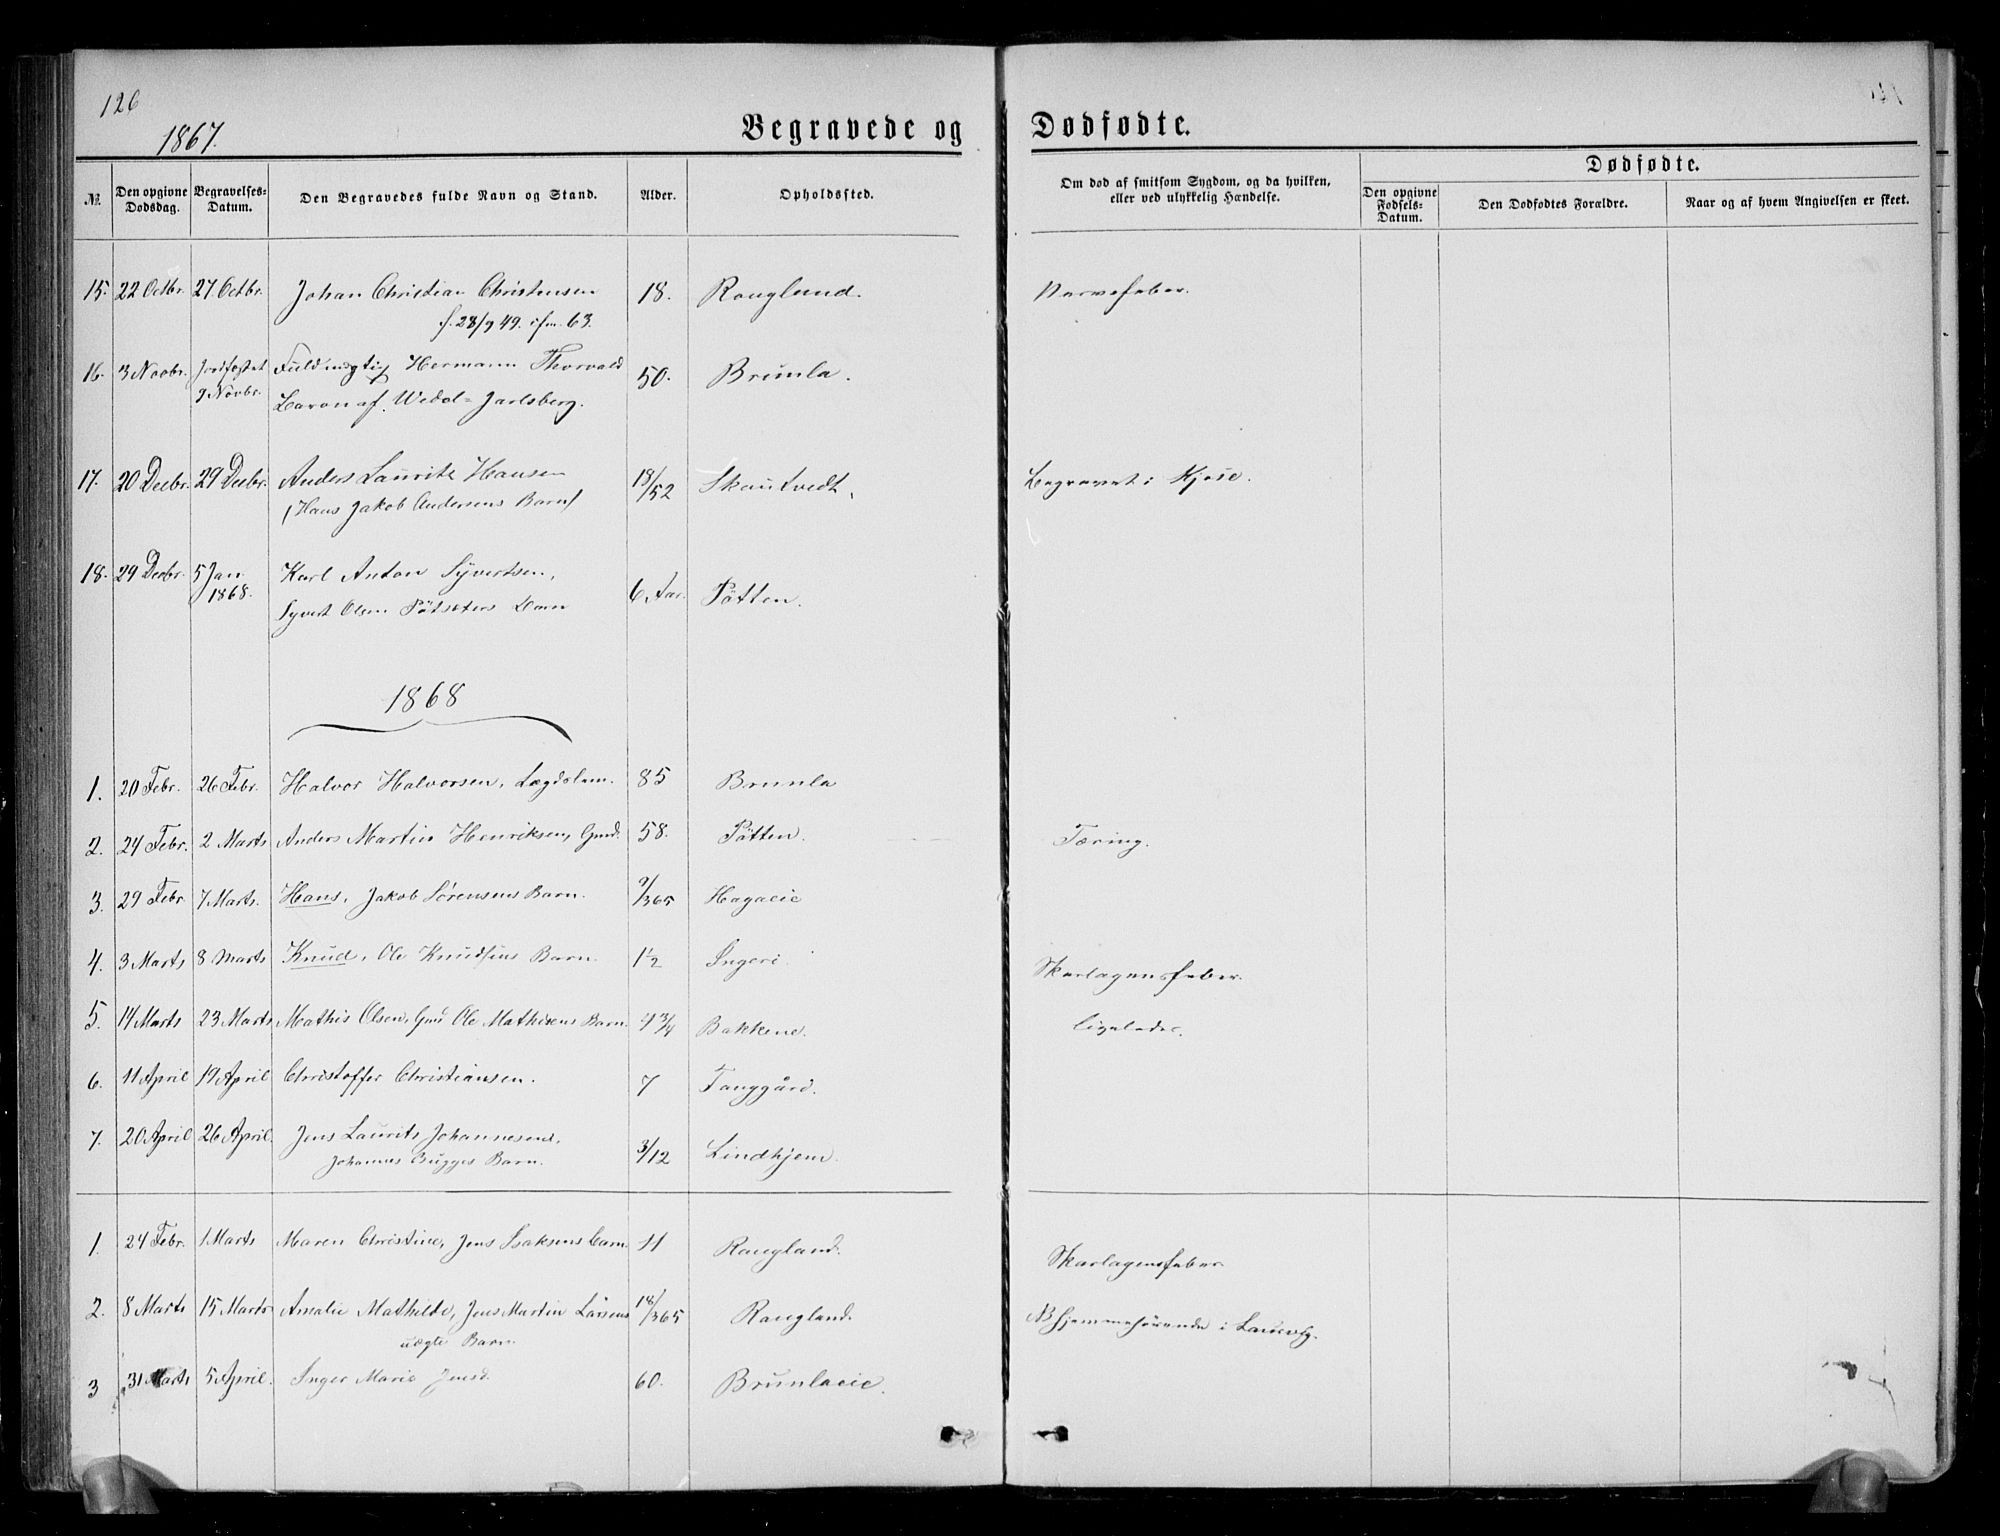 126
1867.
Begravede og Dødfødte.
№. Den opgivne Dødsdag. Begravelses-Datum. Den Begravedes fulde Navn og Stand. Alder. Opholdssted. Om død af smitsom Sygdom, og da hvilken, eller ved ulykkelig Hændelse. Dødfødte. Den opgivne Fødsels-Datum. Den Dødfødtes Forældre. Naar og af hvem Angivelsen er skeet.
15. 22 Octbr. 27 Octbr. Johan Christian Christensen 18. Rougland. Nervefeber.
f. 28/9 49. ifm. 63.
16. 3 Novbr. Jordfæstet Fuldmægtig Hermann Thorvald 50. Brunla.
9 Novbr. Baron af Wedel-Jarlsberg.
17. 20 Decbr. 29 Decbr. Anders Lauritz Hansen 18/52 Skoutvedt. Begravet i Kjose.
(Hans Jakob Andersens Barn)
18. 29 Decbr. 5 Jan 1868. Karl Anton Syvertsen, 6 Aar. Pötten.
Syvert Olsen Barn
1868
1. 20 Febr. 26 Febr. Halvor Halvorsen, Lægdslem. 85 Brunla
2. 24 Febr. 2 Marts Anders Martin Henriksen, Gmd. 58. Pötten. Tæring.
3. 29 Febr. 7 Marts. Hans, Jakob Sörensens Barn. 9/365 Hagaeie
4. 3 Marts 8 Marts Knud, Ole Knudsens Barn. 1½ Ingeri Skarlagensfeber.
5. 14 Marts 23 Marts Mathis Olsen, Gmd Ole Mathisens Barn. 4¾ Bakkene. ligeledes.
6. 11 April 19 April Christoffer Christiansen. 7 Fanggård.
7. 20 April 26 April. Jens Laurits Johannesens, 3/12 Lindhjem.
Johannes Bugges Barn.
1. 24 Febr. 1 Marts Maren Christine, Jens Isaksens Barn. 11 Rougland. Skarlagensfeber
2. 8 Marts 15 Marts Amalie Mathilde, Jens Martin Larsens 18/365 Rougland. NB hjemmehörende i Laurvig.
uægte Barn.
3 31 Marts 5 April. Inger Marie Jensd. 60. Brunlaeie.